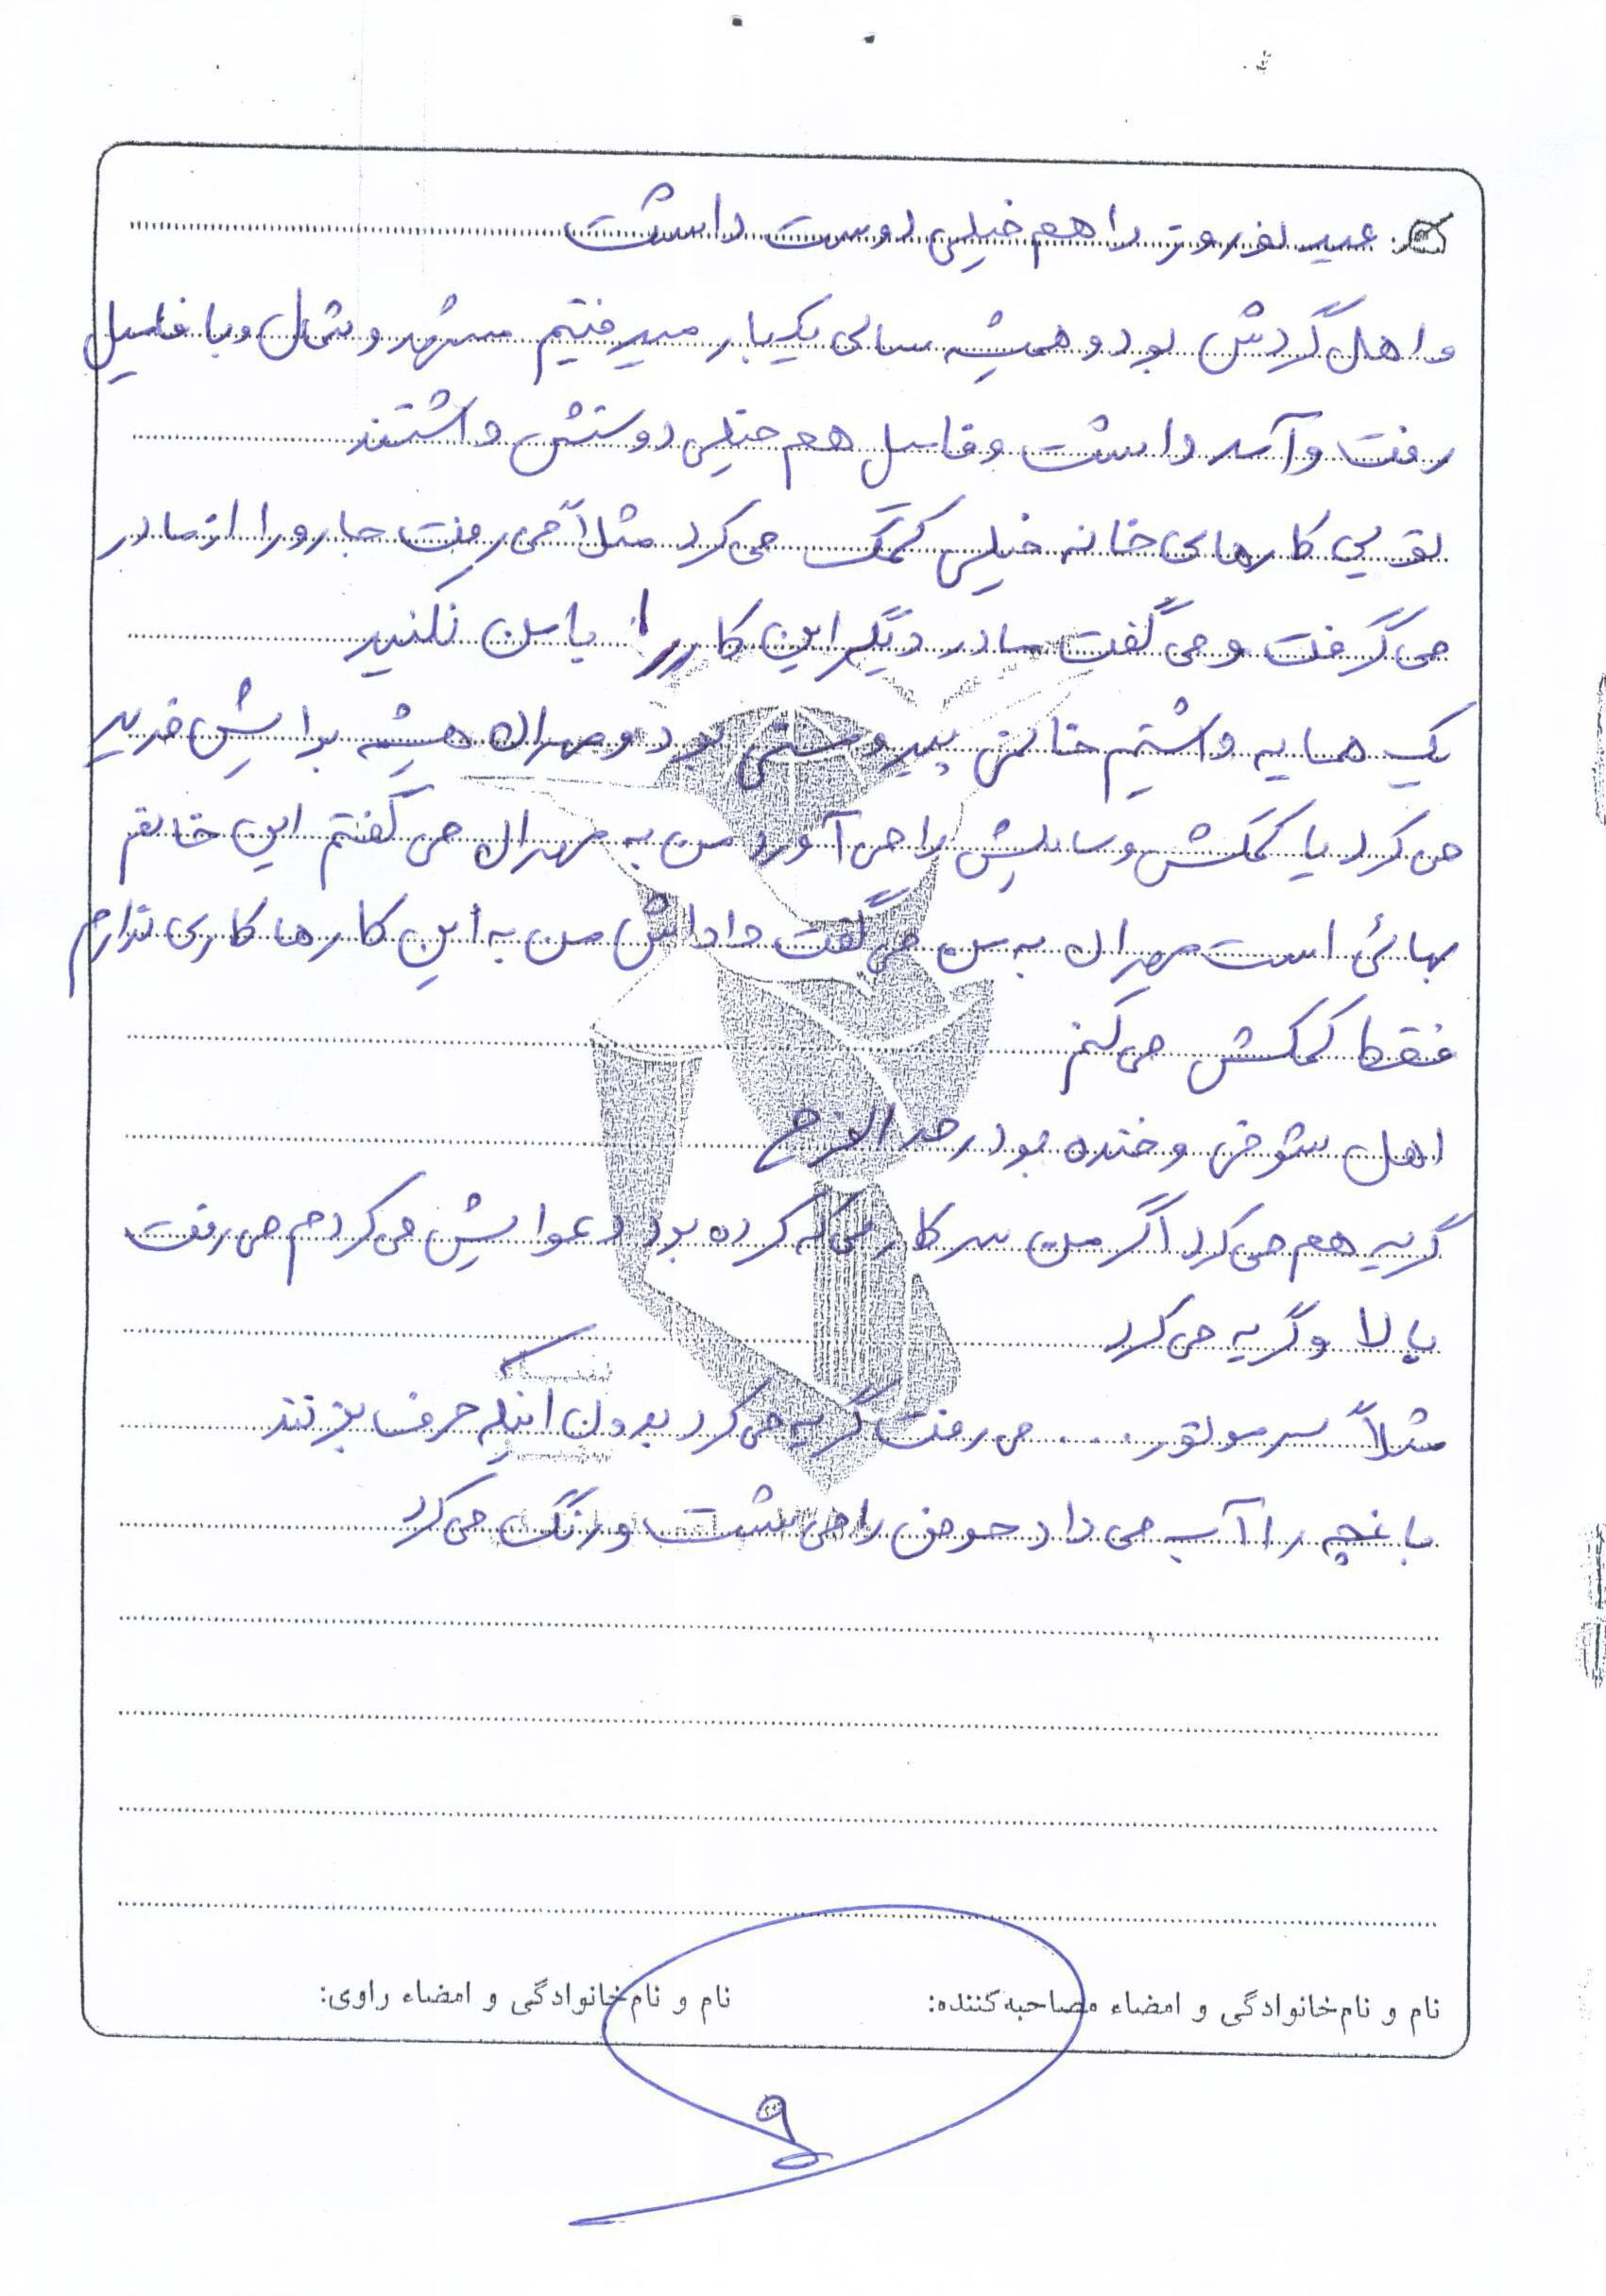 عید نوروز را هم خیلی دوست داشت
و اهل گردش بود و همیشه سالی یکبار میرفتیم مشهد و شمال و با فامیل
رفت و آمد داشت و فامیل هم خیلی دوستش داشتند
توی کارهای خانه خیلی کمک می‌کرد مثلاً می‌رفت جارو را از مادر
می‌گرفت و می‌گفت مادر دیگر این کار را با من نکنید
یک همسایه داشتیم خانمی پیر و مسنی بود و مهران همیشه برایش خرید
می‌کرد یا کمکش وسایلش را می‌آورد من به مهران می‌گفتم این خانم
بهائی است مهران به من می‌گفت داداش من به این کارها کاری ندارم
فقط کمکش می‌کنم
اهل شوخی و خنده بود در حد
گریه هم می‌کرد اگر من سر کاری که کرده بود دعوایش می‌کردم می‌رفت
بالا و گریه می‌کرد
مثلاً سر موتور ... می‌رفت گریه می‌کرد بدون اینکه حرف بزند
باغچه را آب می‌داد حوض را می‌شست و رنگ می‌کرد
نام و نام‌خانوادگی و امضاء مصاحبه‌کننده: نام و نام‌خانوادگی و امضاء راوی:
۹